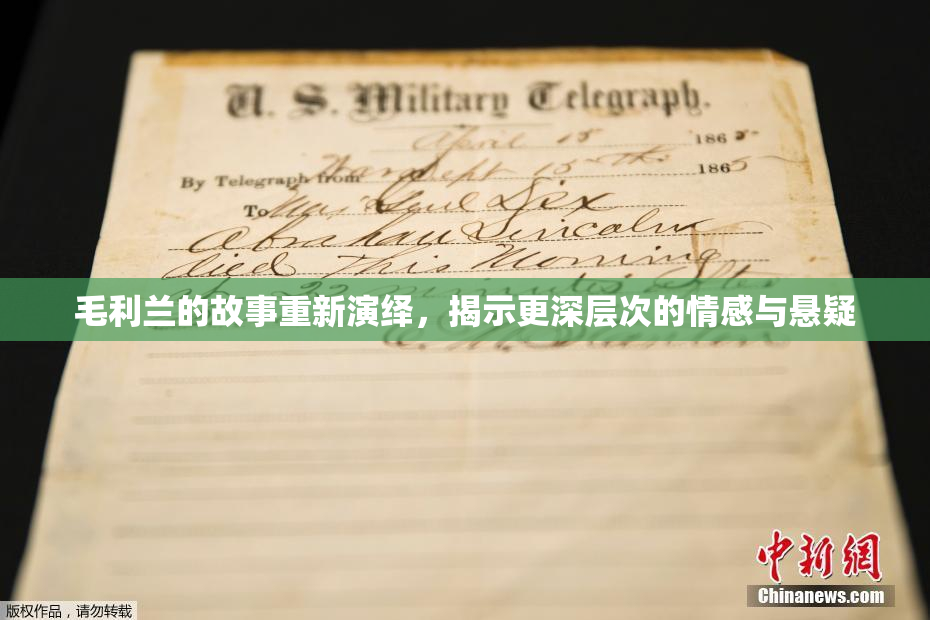 U. S. Military Telegraph.
April 15 1865
By Telegraph from War Dept 15th 1865
To Maj Genl Dix
Abraham Lincoln
died This Morning
at 22 minutes after
毛利兰的故事重新演绎，揭示更深层次的情感与悬疑
E. M. Stanton
中新网
Chinanews.com
版权作品，请勿转载